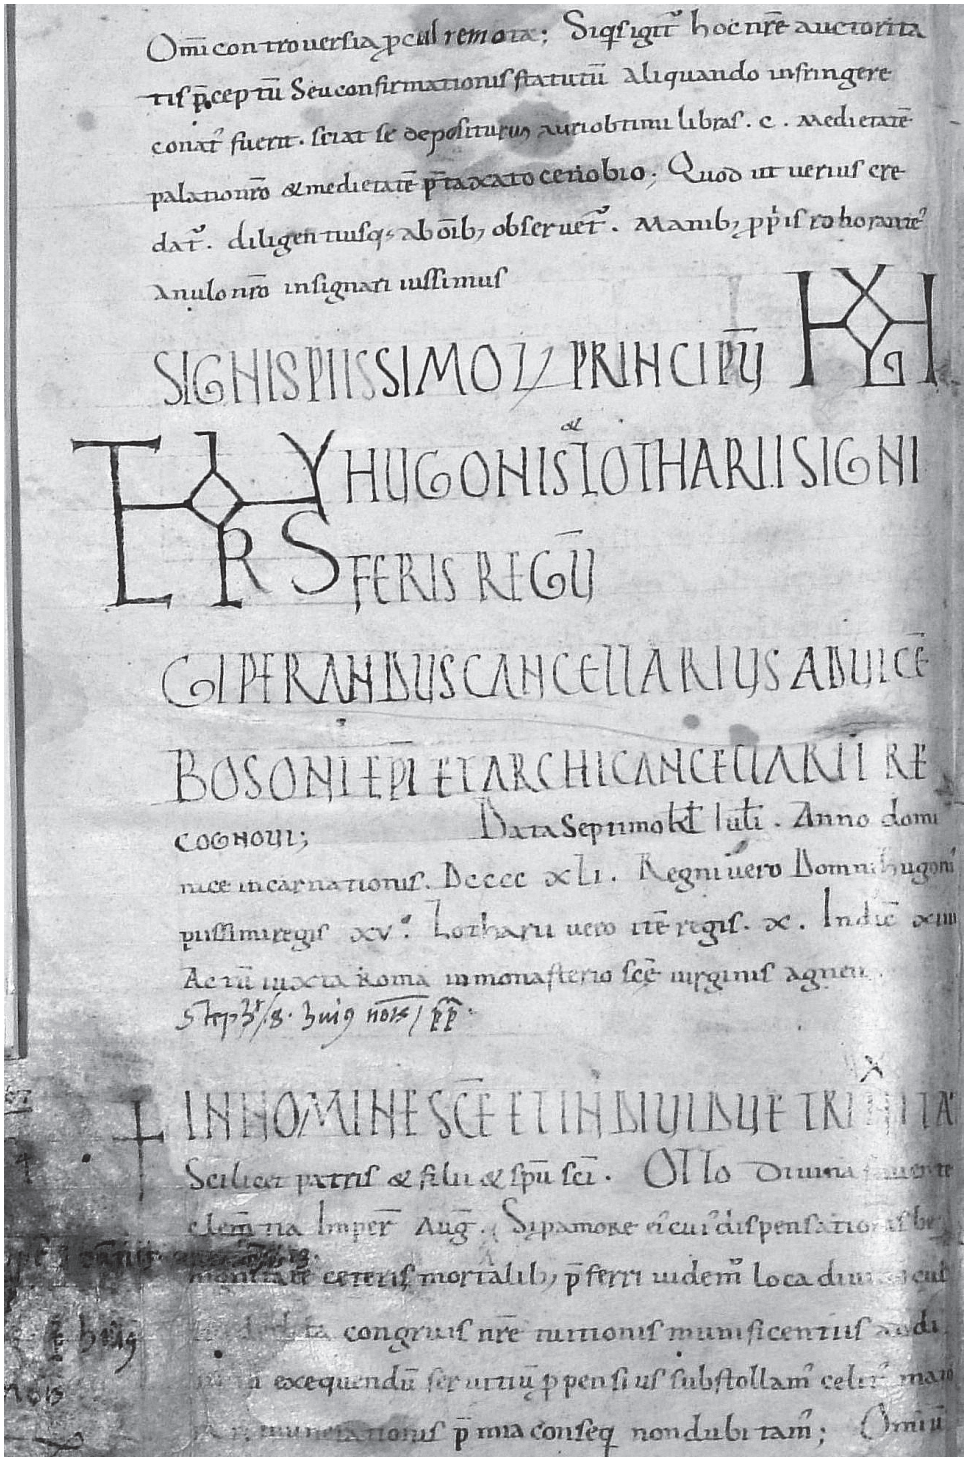 Om̅i controversia ꝓcul remota; Siq̅s igit᷑ hoc nr̅e auctorita
tis p̅ceptū Seu confirmationis statutū Aliquando infringere
conat᷑ fuerit. sciat se depositurū auri obtimi libras. c. Medietatē
palatio nr̅o & medietatē p̅taxato cenobio; Quod ut verius cre
dat᷑. diligentiusq; ab om̅ib; observet᷑. Manib; ꝓpriis roborantes
Anulo nr̅o insignari iussimus
SIGNIS PIISSIMOꝜ PRINCIPŪ
HUGONIS & LOTHARII SIGNI
FERIS REGŪ
GIPERANDUS CANCELLARIUS AD VICĒ
BOSONI EP̅I ET ARCHICANCELLARII RE
COGNOVI; Data Septimo kł Iulii. Anno domi
nice incarnationis. Dcccc xli. Regni vero Domni hugoni
piissimi regis xv. Lotharii vero itē regis. x. Indic̅ xiiii
Actū iuxta Romā in monasterio sc̅e virginis agnetis.
IN NOMINE SC̅E ET INDIVIDUE TRINITA
Scilicet patris & filii & sp̅u sc̅i. OTTO Divina favente
clem̅tia Imper̅ Aug̅. Si p amore ei᷑ cui᷑ dispensationis be
nignitate ceteris mortalib; p̅ferri videm᷑ loca divino cul
congruis nr̅e tuitionis munificentiis
exequendū servitiū ꝓpensius substollam᷑ celit᷑
remunerationis p̅mia conseq̅ non dubitam᷑; Omiū